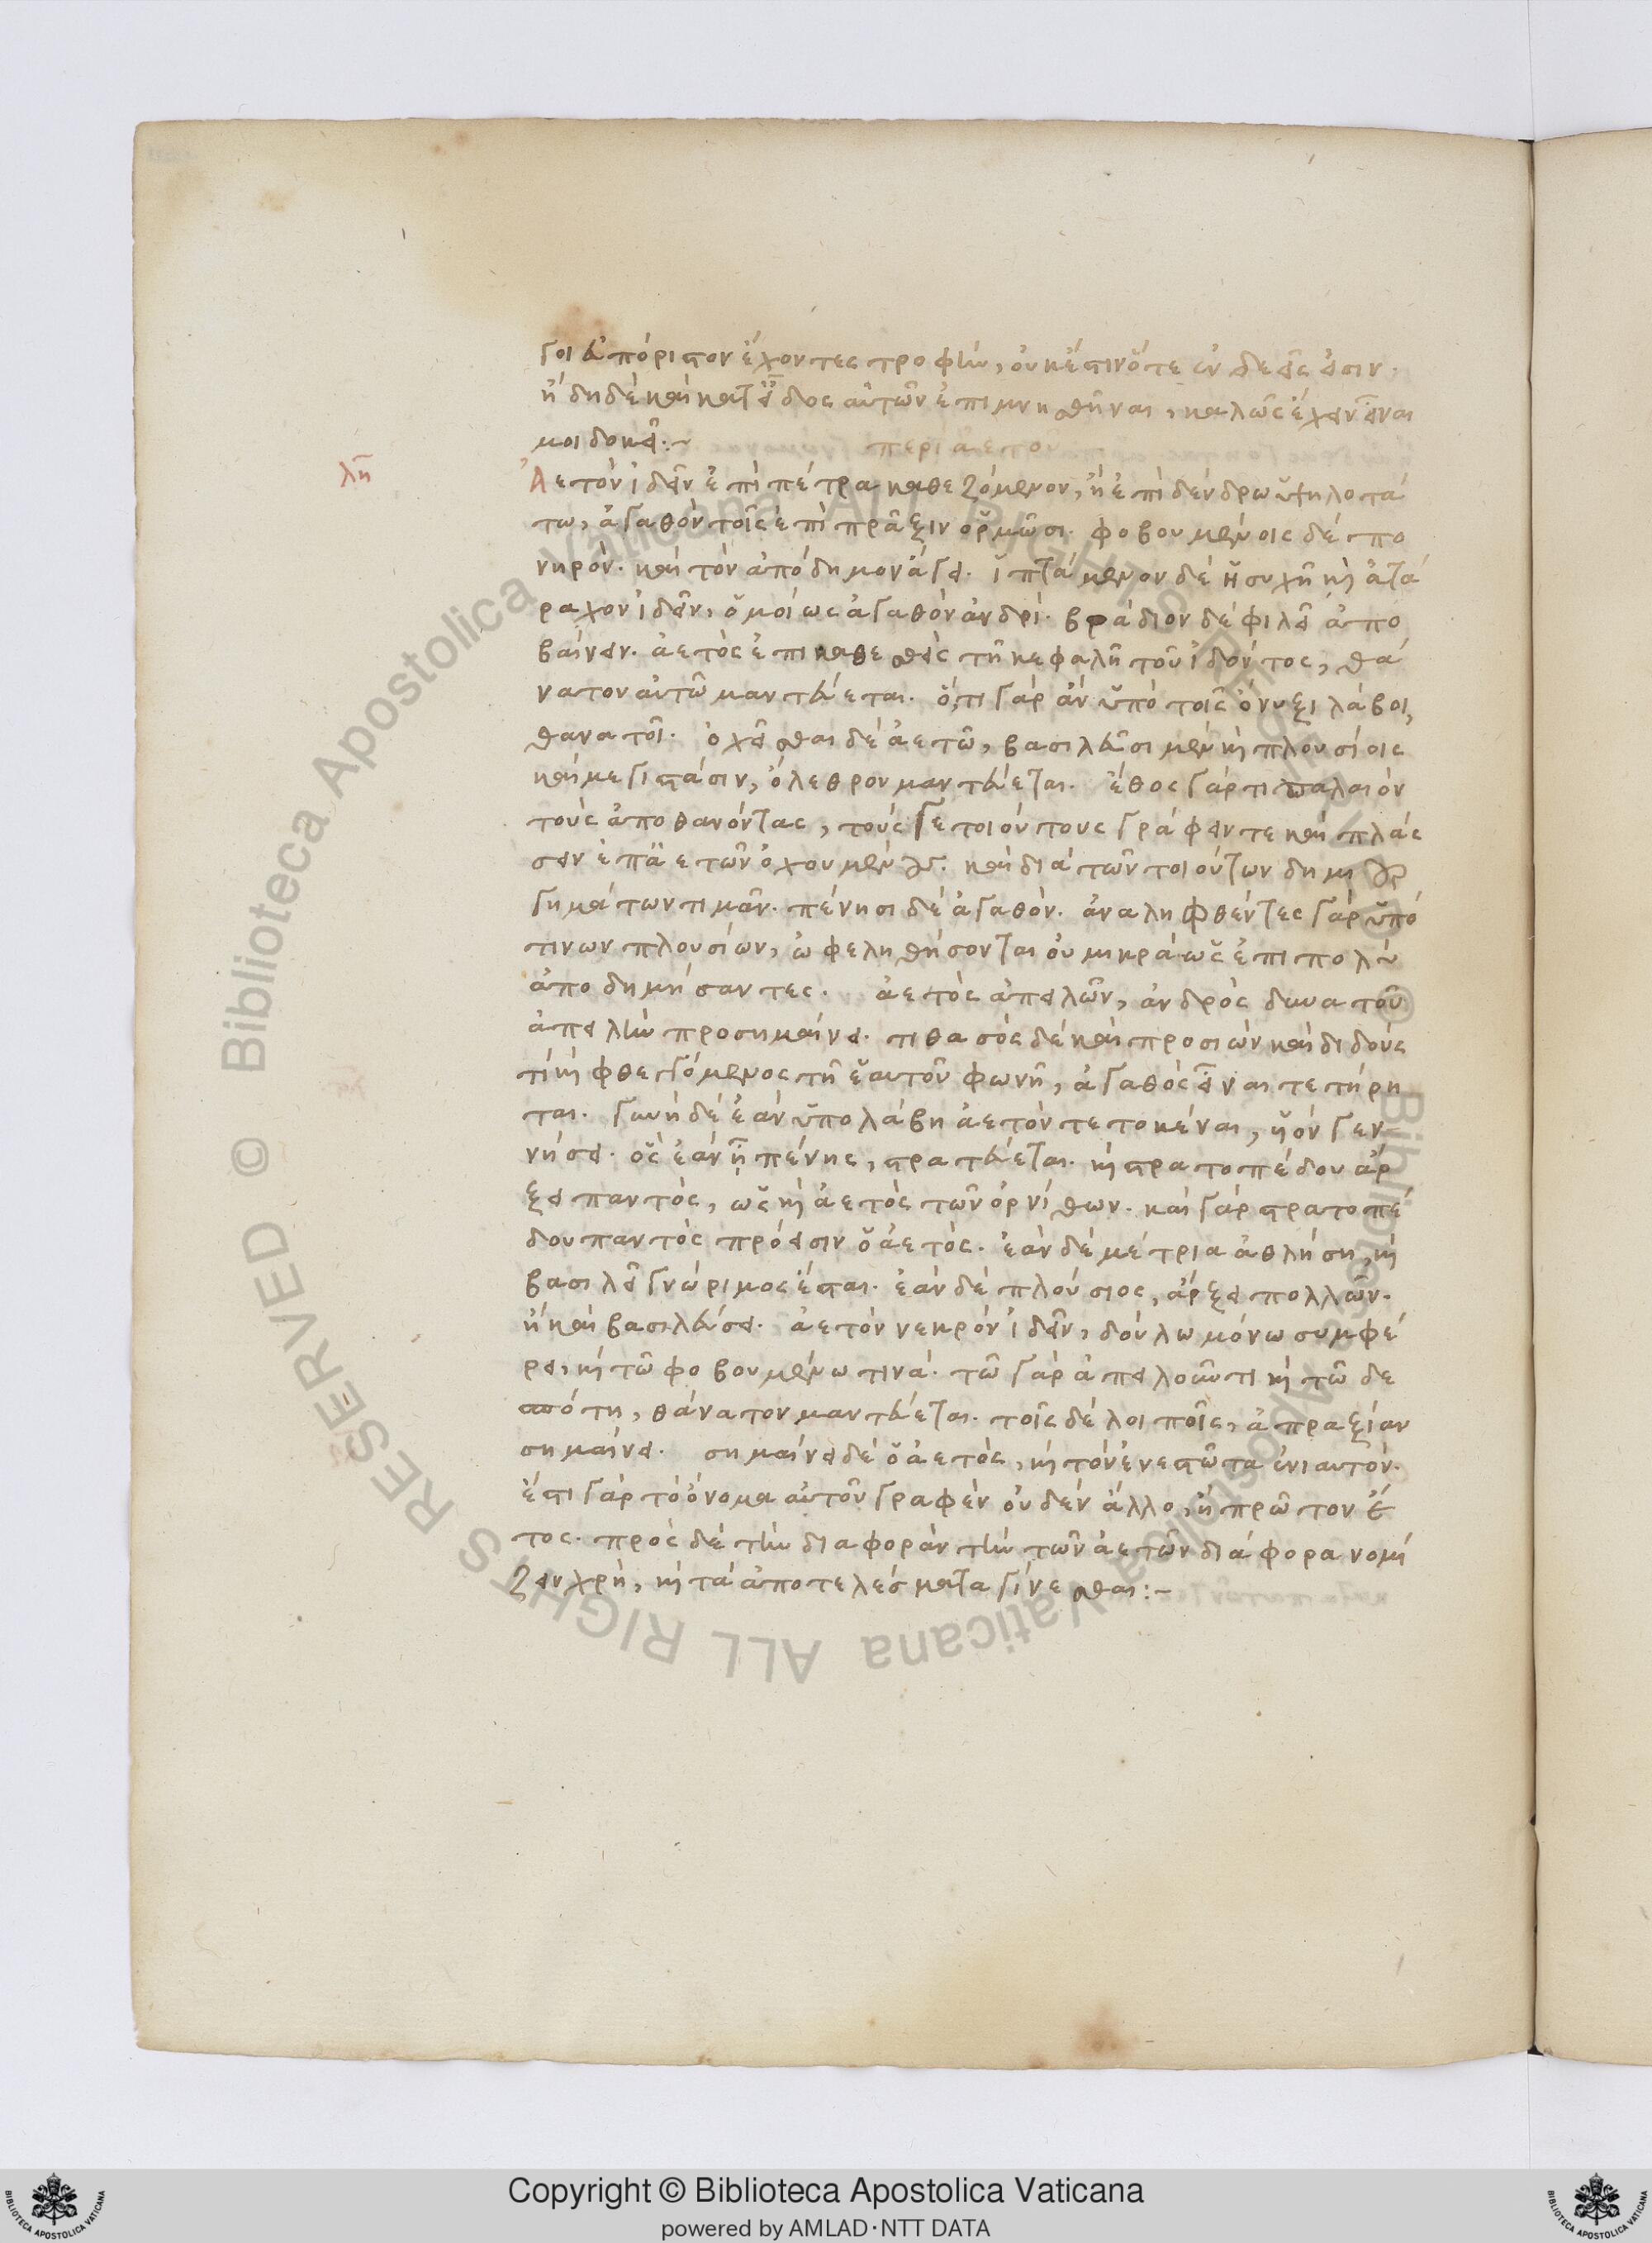 γοι εὐπόριστον ἔχοντες τροφὴν, οὐκέτι ποτὲ ἐνδεεῖς εἰσιν.
ἤδη δὲ καὶ κατ' εἶδος αὐτῶν ἐπιμνησθῆναι, καλῶς ἔχειν εἶναι
μοι δοκεῖ:~ περὶ ἀετοῦ
λη Ἀετὸν ἰδεῖν ἐπὶ πέτρα καθεζόμενον, ἢ ἐπὶ δένδρω ὑψηλοτά
τω, ἀγαθὸν τοῖς ἐπὶ πρᾶξιν ὁρμῶσι. φοβουμένοις δὲ πο
νηρόν. καὶ τὸν ἀπόδημον ἄγει. ἱπτάμενον δὲ ἡσυχῆ καὶ ἀτά
ραχον ἰδεῖν, ὁμοίως ἀγαθὸν ἀνδρί. βράδιον δὲ φιλεῖ ἀπο
βαίνειν. ἀετὸς ἐπικαθεσθεὶς τῆ κεφαλῆ τοῦ ἰδόντος, θά
νατον αὐτῶ μαντεύεται. ὅ,τι γὰρ ἂν ὑπὸ τοῖς ὄνυξι λάβοι,
θανατοῖ. ὀχεῖσθαι δὲ ἀετῶ, βασιλεῦσι μὲν καὶ πλουσίοις
καὶ μεγιστάσιν, ὄλεθρον μαντεύεται. ἔθος γάρ τι παλαιὸν
τοὺς ἀποθανόντας, τούς γε τοιούτους γράφειν τε καὶ πλάσ
σειν ἐπ' ἀετῶν ὀχουμένους. καὶ διὰ τῶν τοιούτων δημιουρ
γημάτων τιμᾶν. πένησι δὲ ἀγαθόν. ἀναληφθέντες γὰρ ὑπό
τινων πλουσίων, ὠφεληθήσονται οὐ μικρὰ ὡς ἐπιπολὺ
ἀποδημήσαντες. ἀετὸς ἀπειλῶν, ἀνδρὸς δυνατοῦ
ἀπειλὴν προσημαίνει. τιθασὸς δὲ καὶ προσιὼν καὶ διδούς
τί καὶ φθεγγόμενος τῆ ἑαυτοῦ φωνῆ, ἀγαθὸς εἶναι τετήρη
ται. γυνὴ δὲ ἐὰν ὑπολάβη ἀετὸν τετοκέναι, υἱὸν γεν
νήσει. ὃς ἐὰν ᾖ πένης, στρατεύεται. καὶ στρατοπέδου ἄρ
ξει παντὸς, ὡς καὶ ἀετὸς τῶν ὀρνίθων. καὶ γὰρ στρατοπέ
δου παντὸς πρόεισιν ὁ ἀετὸς. ἐὰν δὲ μέτρια ἀθλήση, καὶ
βασιλεῖ γνώριμος ἔσται. ἐὰν δὲ πλούσιος, ἄρξει πολλῶν.
ἢ καὶ βασιλεύσει. ἀετὸν νεκρὸν ἰδεῖν, δούλω μόνω συμφέ
ρει, καὶ τῶ φοβουμένω τινά. τῶ γὰρ ἀπειλοῦντι καὶ τῶ δε
σπότη, θάνατον μαντεύεται. τοῖς δὲ λοιποῖς, ἀπραξίαν
σημαίνει. σημαίνει δὲ ὁ ἀετὸς, καὶ τὸν ἐνεστῶτα ἐνιαυτόν.
ἔστι γὰρ τὸ ὄνομα αὐτοῦ γραφὲν οὐδὲν ἄλλο, ἢ πρῶτον ἔ
τος. πρὸς δὲ τὴν διαφορὰν τὴν τῶν ἀετῶν διάφορα νομί
ζειν χρὴ, καὶ τὰ ἀποτελέσματα γίνεσθαι:~